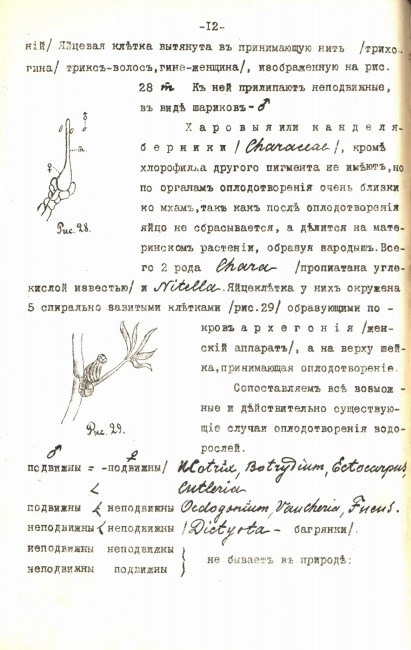 -12-
ній/ Яйцевая клѣтка вытянута въ принимающую нить /трихо-
гина/ триксъ-волосъ, гине-женщина/, изображенную на рис.
28 m Къ ней прилипаютъ неподвижные,
въ видѣ шариковъ-♂
Харовыя или канделя-
берники /Characeae/, кромѣ
хлорофилла другого пигмента не имѣютъ, но
по органамъ оплодотворенія очень близки
ко мхамъ, такъ какъ послѣ оплодотворенія
яйцо не сбрасывается, а дѣлится на мате-
ринскомъ растеніи, образуя зародышъ. Все-
го 2 рода Chara /пропиатана угле-
кислой известью/ и Nitella. Яйцеклѣтка у нихъ окружена
5 спирально завитыми клѣтками /рис.29/ образующими по -
кровъ архегонія /жен-
скій аппаратъ/, а на верху шей-
ка, принимающая оплодотвореніе.
Сопоставляемъ всѣ возмож -
ные и дѣйствительно существую-
щіе случаи оплодотворенія водо-
рослей.
♂ ♀
♀ m
Рис. 28.
Рис. 29.
♂ ♀
подвижны = -подвижны/ Ulotrix, Botrydium, Ectocarpus,
< Cutleria
подвижны < неподвижны Oedogonium, Vaucheria, Fucus.
неподвижны < неподвижны /Dictyota - багрянки/.
неподвижны неподвижны
неподвижны подвижны } не бываетъ въ природѣ: